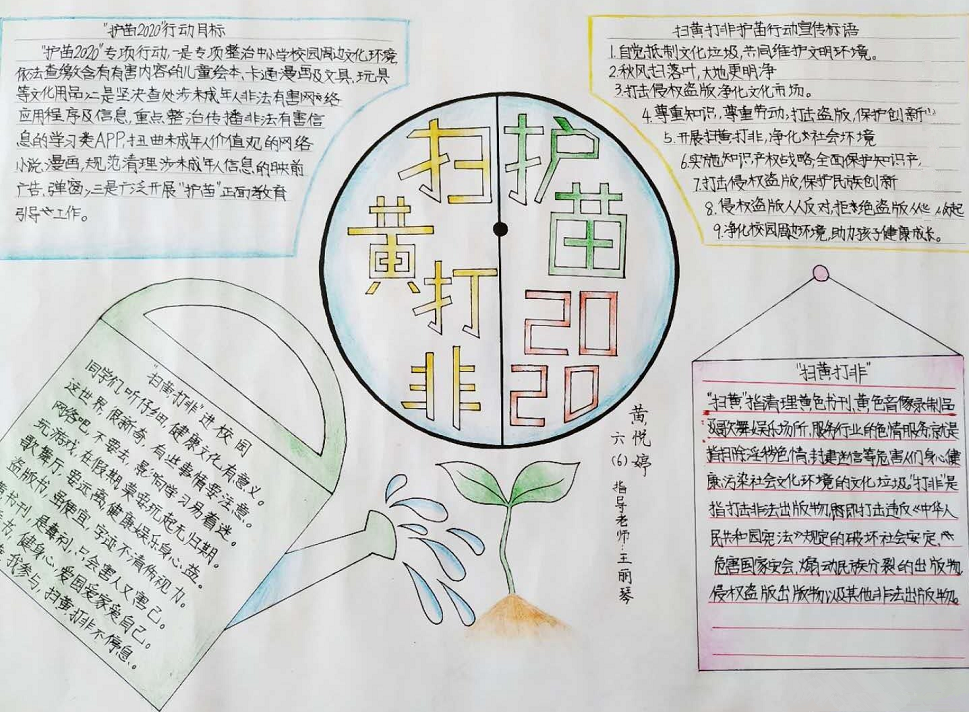 "护苗2020"行动目标
"护苗2020"专项行动,一是专项整治中小学校园周边文化环境
依法查缴含有有害内容的儿童绘本,卡通漫画及文具,玩具
等文化用品;二是坚决查处涉未成年人非法有害网络
应用程序及信息,重点整治传播非法有害信
息的学习类APP,扭曲未成年人价值观的网络
小说,漫画,规范清理涉未成年人信息的映前
广告,弹窗;三是广泛开展"护苗"正面教育
引导工作。
扫黄打非护苗行动宣传标语
1.自觉抵制文化垃圾,共同维护文明环境。
2.秋风扫落叶,大地更明净
3.打击侵权盗版净化文化市场。
4.尊重知识,尊重劳动,打击盗版,保护创新
5.开展扫黄打非,净化社会环境
6.实施知识产权战略,全面保护知识产
7.打击侵权盗版,保护民族创新
8.侵权盗版人人反对,拒绝盗版从 做起
9.净化校园周边环境,助力孩子健康成长。
扫
黄
打
非
护
苗
20
20
黄悦婷
六(6)
指导老师:王丽琴
"扫黄打非"进校园
同学们听仔细,健康文化有意义。
这世界,很新奇,有些事情要注意。
网络吧,不要去,影响学习易着迷。
玩游戏,在假期,莫要玩起无归期。
歌舞厅,要远离,健康娱乐身心益。
盗版书,虽便宜,字迹不清伤视力。
书刊,是毒利,只会害人又害己。
健身心,爱国爱家爱自己。
我参与,扫黄打非不停息。
"扫黄打非"
"扫黄"指清理黄色书刊,黄色音像录制品
及歌舞娱乐场所,服务行业的色情服务,就是
指扫除淫秽色情,封建迷信等危害人们身心健
康,污染社会文化环境的文化垃圾,"打非"是
指打击非法出版物,即打击违反《中华人
民共和国宪法》规定的破坏社会安定,
危害国家安全,煽动民族分裂的出版物,
侵权盗版出版物以及其他非法出版物。